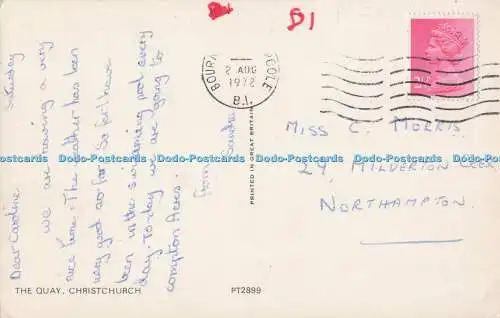 Tuesday
Dear Caroline
we are having a very
nice time. The weather has been
very good so far. So far I have
been in the swimming pool every
day. To-day we are going to
compton Acres.
from Sandra
THE QUAY, CHRISTCHURCH
PT2899
PRINTED IN GREAT BRITAIN
B1
POOLE
2 AUG
1972
B.I.
2½P
MISS C. MORRIS
24, MILVERTON CRES
NORTHAMPTON
Dodo-Postcards Dodo-Postcards Dodo-Postcards Dodo-Postcards Dodo-Postcards Dodo-Postcards